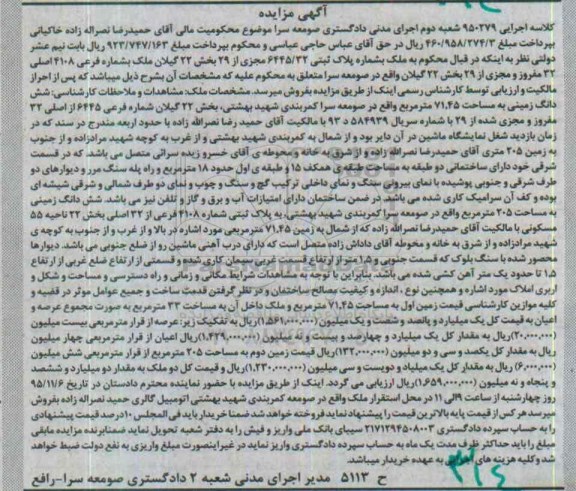 آگهی مزایده
کلاسه اجرایی ۹۵۰۲۷۹ شعبه دوم اجرای مدنی دادگستری صومعه سرا موضوع محکومیت مالی آقای حمیدرضا نصراله زاده خاکیانی
بپرداخت مبلغ ۴۶۰/۹۵۸/۲۷۴/۳ ریال در حق آقای عباس حاجی عباسی و محکوم بپرداخت مبلغ ۹۲۳/۷۴۷/۱۶۳ ریال بابت نیم عشر
دولتی نظر به اینکه در قبال محکوم به ملک بشماره پلاک ثبتی ۶۴۴۵/۳۲ مجزی از ۲۹ بخش ۲۲ گیلان ملک بشماره فرعی ۴۱۰۸ اصلی
۳۲ مفروز و مجزی از ۲۹ بخش ۲۲ گیلان واقع در صومعه سرا متعلق به محکوم علیه که مشخصات آن بشرح ذیل میباشد که پس از احراز
مالکیت و ارزیابی توسط کارشناس رسمی اینک از طریق مزایده بفروش میرسد. مشخصات ملک: مشاهدات و ملاحظات کارشناسی: شش
دانگ زمینی به مساحت ۷۱.۴۵ مترمربع واقع در صومعه سرا کمربندی شهید بهشتی، بخش ۲۲ گیلان شماره فرعی ۶۴۴۵ از اصلی ۳۲
مفروز و مجزی شده از ۲۹ با شماره سریال ۵۸۴۹۳۹ د ۹۳ با مالکیت آقای حمید رضا نصراله زاده با حدود اربعه مندرج در سند که در
زمان بازدید شغل نمایشگاه ماشین در آن دایر بود و از شمال به کمربندی شهید بهشتی و از غرب به کوچه شهید مرادزاده و از جنوب
به زمین ۲۰۵ متری آقای حمیدرضا نصراله زاده و از شرق به خانه و محوطه ی آقای خسرو زیده سرائی متصل می باشد. که در قسمت
شرقی خود دارای ساختمانی دو طبقه به مساحت طبقه ی همکف ۱۵ و طبقه ی اول حدود ۱۸ مترمربع و راه پله سنگ مرر و دیوارهای دو
طرف شرقی و جنوبی پوشیده با نمای بیرونی سنگ و نمای داخلی ترکیب گچ و سنگ و چوب و نمای دو طرف شمالی و شرقی شیشه ای
بوده و کف آن سرامیک کاری شده می باشد. در ضمن ساختمان دارای امتیازات آب و برق و گاز و تلفن نیز می باشد. شش دانگ زمینی
به مساحت ۲۰۵ مترمربع واقع در صومعه سرا کمربندی شهید بهشتی، به پلاک ثبتی شماره ۴۱۰۸ فرعی از ۳۲ اصلی بخش ۲۲ ناحیه ۵۵
مسکونی با مالکیت آقای حمیدرضا نصراله زاده که از شمال به زمین ۷۱.۴۵ مترمربعی مورد اشاره در بالا و از غرب و از جنوب به کوچه ی
شهید مرادزاده و از شرق به خانه و محوطه آقای داداش زاده متصل است که دارای درب آهنی ماشین رو از ضلع جنوبی می باشد. دیوارها
محصور شده با سنگ بلوک که قسمت جنوبی و ۱.۵ متر از ارتفاع قسمت غربی سیمان کاری شده و قسمتی از ارتفاع ضلع غربی از ارتفاع
۱.۵ تا حدود یک متر آهن کشی شده می باشد. بنابراین با توجه به مشاهدات شرایط مکانی و زمانی و راه دسترسی و مساحت و شکل و
اربری املاک مورد اشاره و همچنین نوع ، اندازه و کیفیت مصالح ساختمان و در نظر گرفتن قدمت ساخت و جمیع عوامل موثر در قضیه و
کلیه موازین کارشناسی قیمت زمین اول به مساحت ۷۱.۴۵ مترمربع و ملک داخل آن به مساحت ۳۳ مترمربع به صورت مجموع عرصه و
اعیان به قیمت کل یک میلیارد و پانصد و شصت و یک میلیون (۱,۵۶۱,۰۰۰,۰۰۰)ریال به تفکیک زیر: عرصه از قرار مترمربعی بیست میلیون
(۲۰,۰۰۰,۰۰۰)ریال به مقدار کل یک میلیارد و چهارصد و بیست و نه میلیون (۱,۴۲۹,۰۰۰,۰۰۰)ریال اعیان از قرار مترمربعی چهار میلیون
ریال به مقدار کل یکصد و سی و دو میلیون (۱۳۲,۰۰۰,۰۰۰)ریال قیمت زمین دوم به مساحت ۲۰۵ مترمربع از قرار مترمربعی شش میلیون
(۶,۰۰۰,۰۰۰)ریال به مقدار کل یک میلیاد و دویست و سی میلیون (۱,۲۳۰,۰۰۰,۰۰۰)ریال و قیمت کل دو ملک به مقدار دو میلیارد و ششصد
و پنجاه و نه میلیون (۱,۶۵۹,۰۰۰,۰۰۰)ریال ارزیابی می گردد. اینک از طریق مزایده با حضور نماینده محترم دادستان در تاریخ ۹۵/۱۱/۶
روز چهارشنبه از ساعت ۹الی ۱۱ در محل استقرار ملک واقع در صومعه کمربندی شهید بهشتی اتومبیل گالری حمید نصراله زاده بفروش
میرسد هر کس از قیمت پایه بالاترین قیمت را پیشنهاد نماید فروخته خواهد شد ضمنا خریدار باید فی المجلس ۱۰درصد قیمت پیشنهادی
را به حساب سپرده دادگستری ۲۱۷۱۲۹۴۵۰۸۰۰۳ سیبای بانک ملی واریز و فیش را به دفتر شعبه تحویل نماید ضمنابرنده مزایده مابقی
مبلغ را باید حداکثر ظرف مدت یک ماه به حساب سپرده دادگستری واریز نماید در غیراینصورت مبلغ واریزی به نفع دولت ضبط خواهد
شد وکلیه هزینه های به عهده خریدار میباشد.
ح ۵۱۱۳ مدیر اجرای مدنی شعبه ۲ دادگستری صومعه سرا-رافع